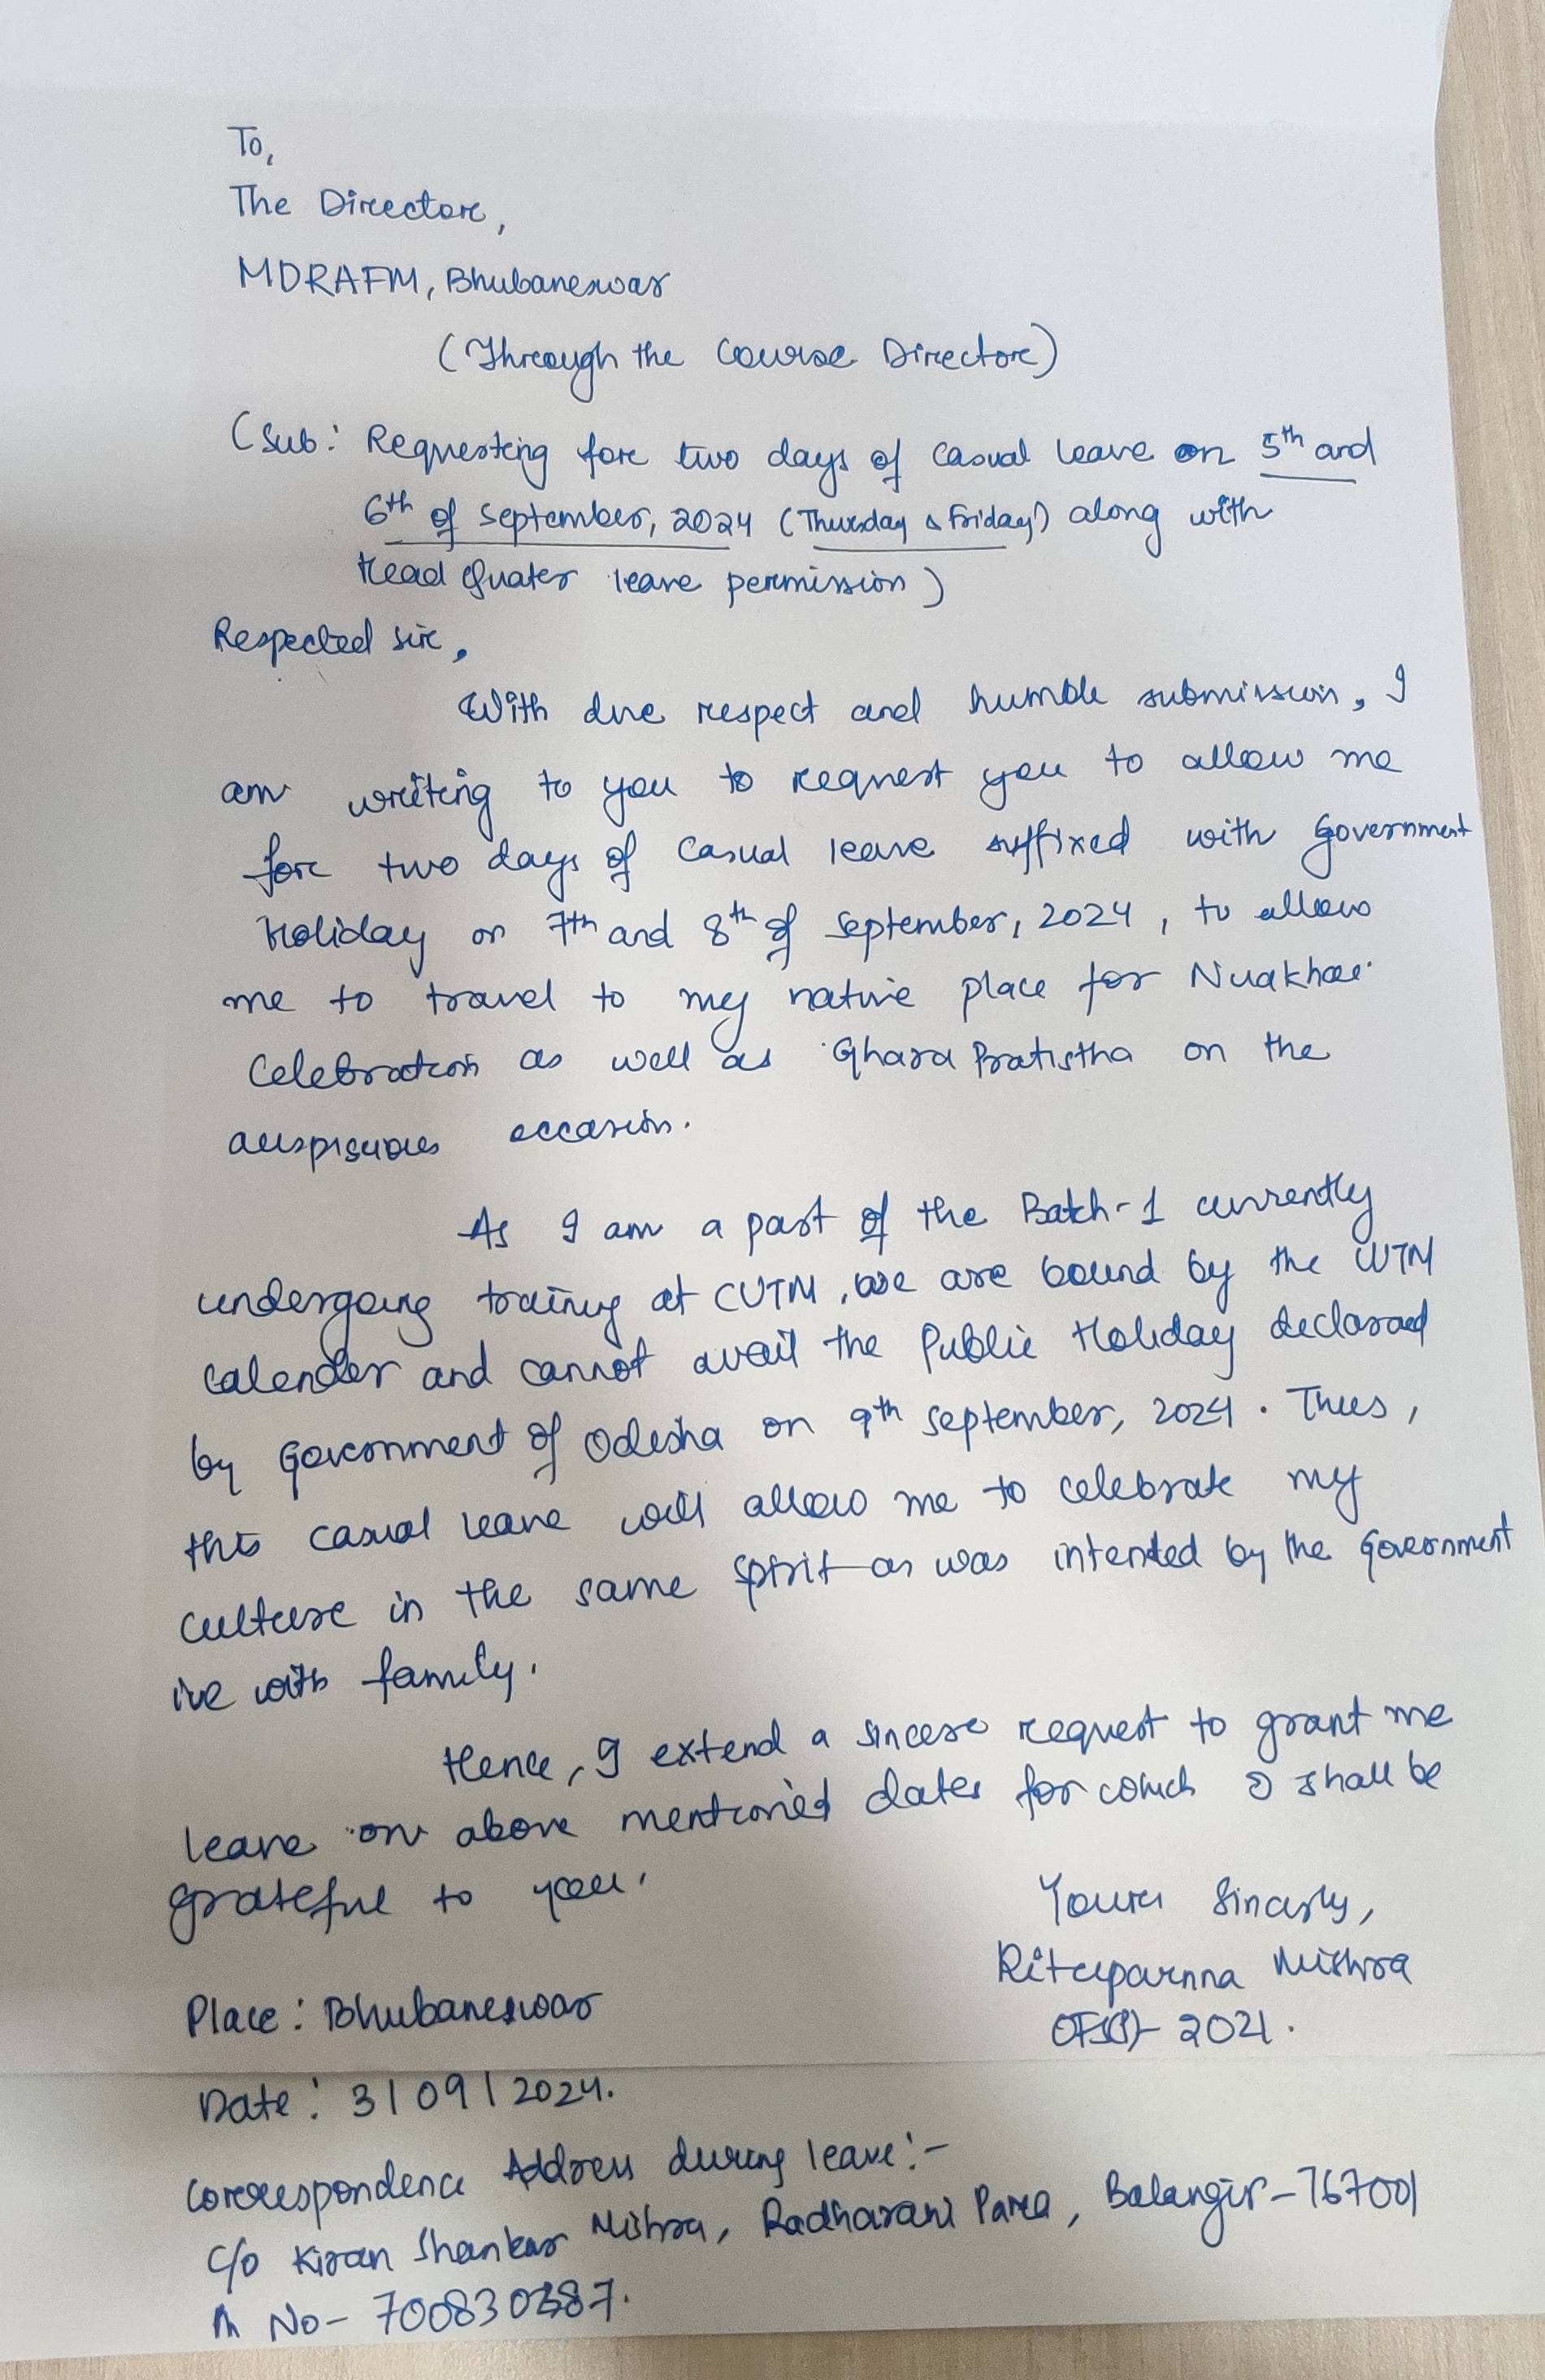 To,
The Director,
MDRAFM, Bhubaneswar
(Through the Course Director)
(Sub: Requesting for two days of Casual leave on 5th and
6th of September, 2024 (Thursday & Friday) along with
Head Quater leave permission)
Respected sir,
With due respect and humble submission, I
am writing to you to request you to allow me
for two days of Casual leave suffixed with Government
Holiday on 7th and 8th of September, 2024, to allow
me to travel to my native place for Nuakhai
Celebration as well as Ghara Pratistha on the
auspicuous occasion.
As I am a part of the Batch-1 currently
undergoing training at CUTM, we are bound by the CUTM
Calender and cannot avail the Public Holiday declared
by Government of Odisha on 9th September, 2024. Thus,
this casual leave will allow me to celebrate my
culture in the same spirit as was intended by the Government
ie with family.
Hence, I extend a sincere request to grant me
leave on above mentioned dates for which I shall be
grateful to you.
Yours Sincerly,
Rituparnna Mishra
OFS - 2021.
Place: Bhubaneswar
Date: 3/09/2024.
Correspondence Address during leave:-
C/o Kiran Shankar Mishra, Radharani Para, Balangir-767001
M No-